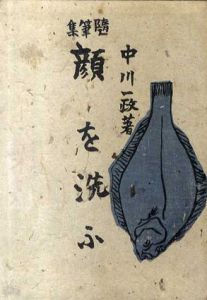 中川一政著
随筆集
顔を洗ふ